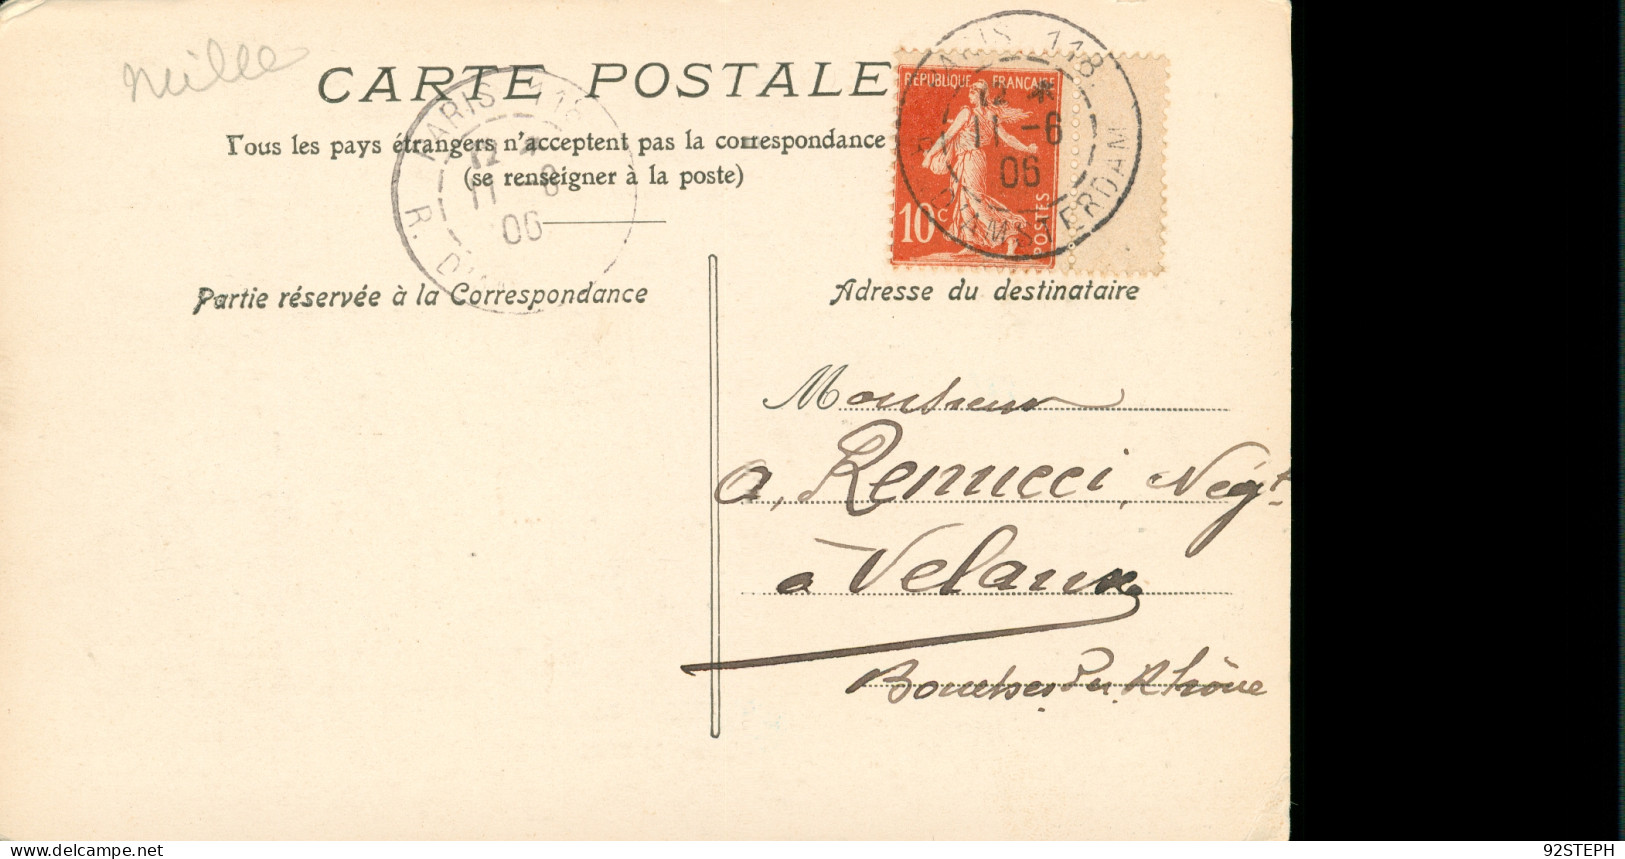 mille
CARTE POSTALE
Tous les pays étrangers n'acceptent pas la correspondance
(se renseigner à la poste)
PARIS 118
12
11 -6
06
R. D'AM
RÉPUBLIQUE FRANÇAISE
10 c
POSTES
PARIS 118
12 *
11 -6
06
R. D'AMSTERDAM
Partie réservée à la Correspondance
Adresse du destinataire
Monsieur
A, Renucci, Négt
à Velaux
Bouches du Rhône
delcampe.net
92STEPH